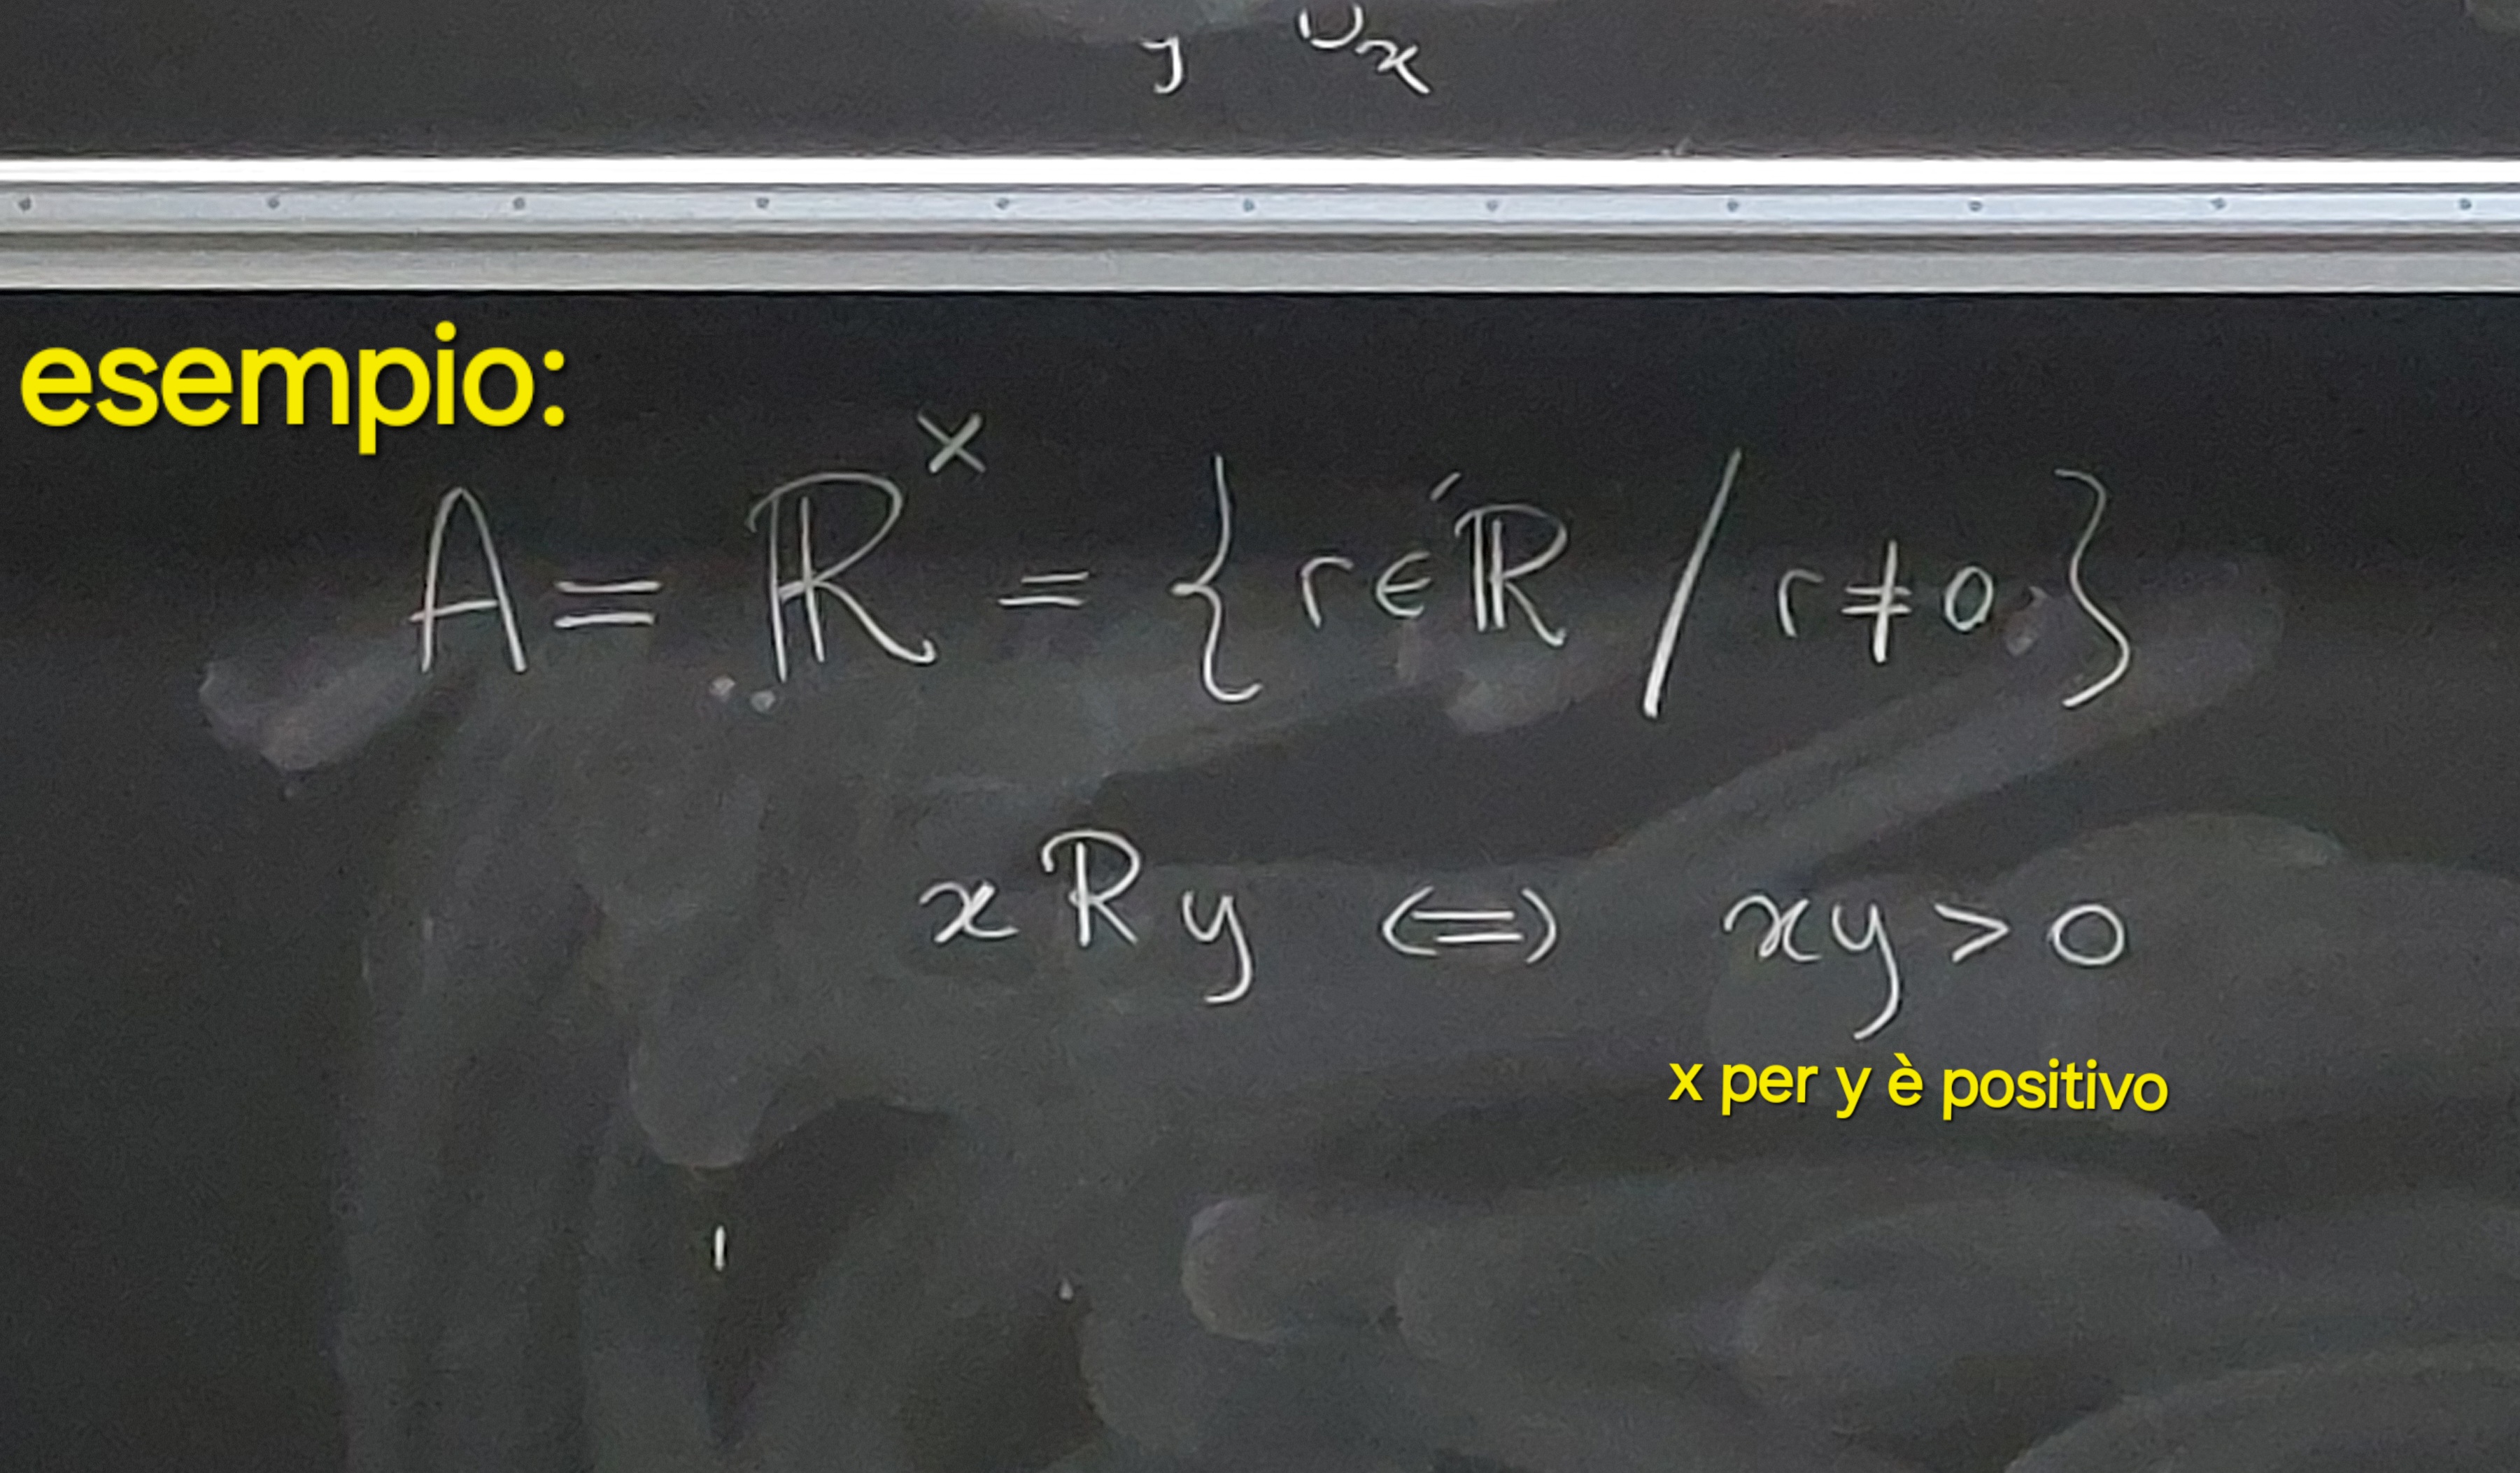 esempio:
A = ℝ^× = { r ∈ ℝ / r ≠ 0 }
x R y ⇔ xy > 0
x per y è positivo